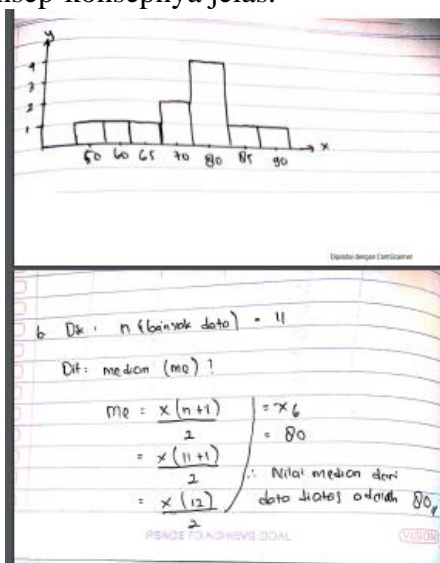 konsep-konsepnya jelas.
y
4
3
2
1
50 60 65 70 80 85 90 x
Dipindai dengan CamScanner
b Dik : n (banyak data) = 11
Dit : median (me) ?
me = x (n+1) = x6
2 = 80
= x (11+1)
2 ∴ Nilai median dari
= x (12) data diatas adalah 80,
2
PEACE TO ACHIEVE GOAL VISION